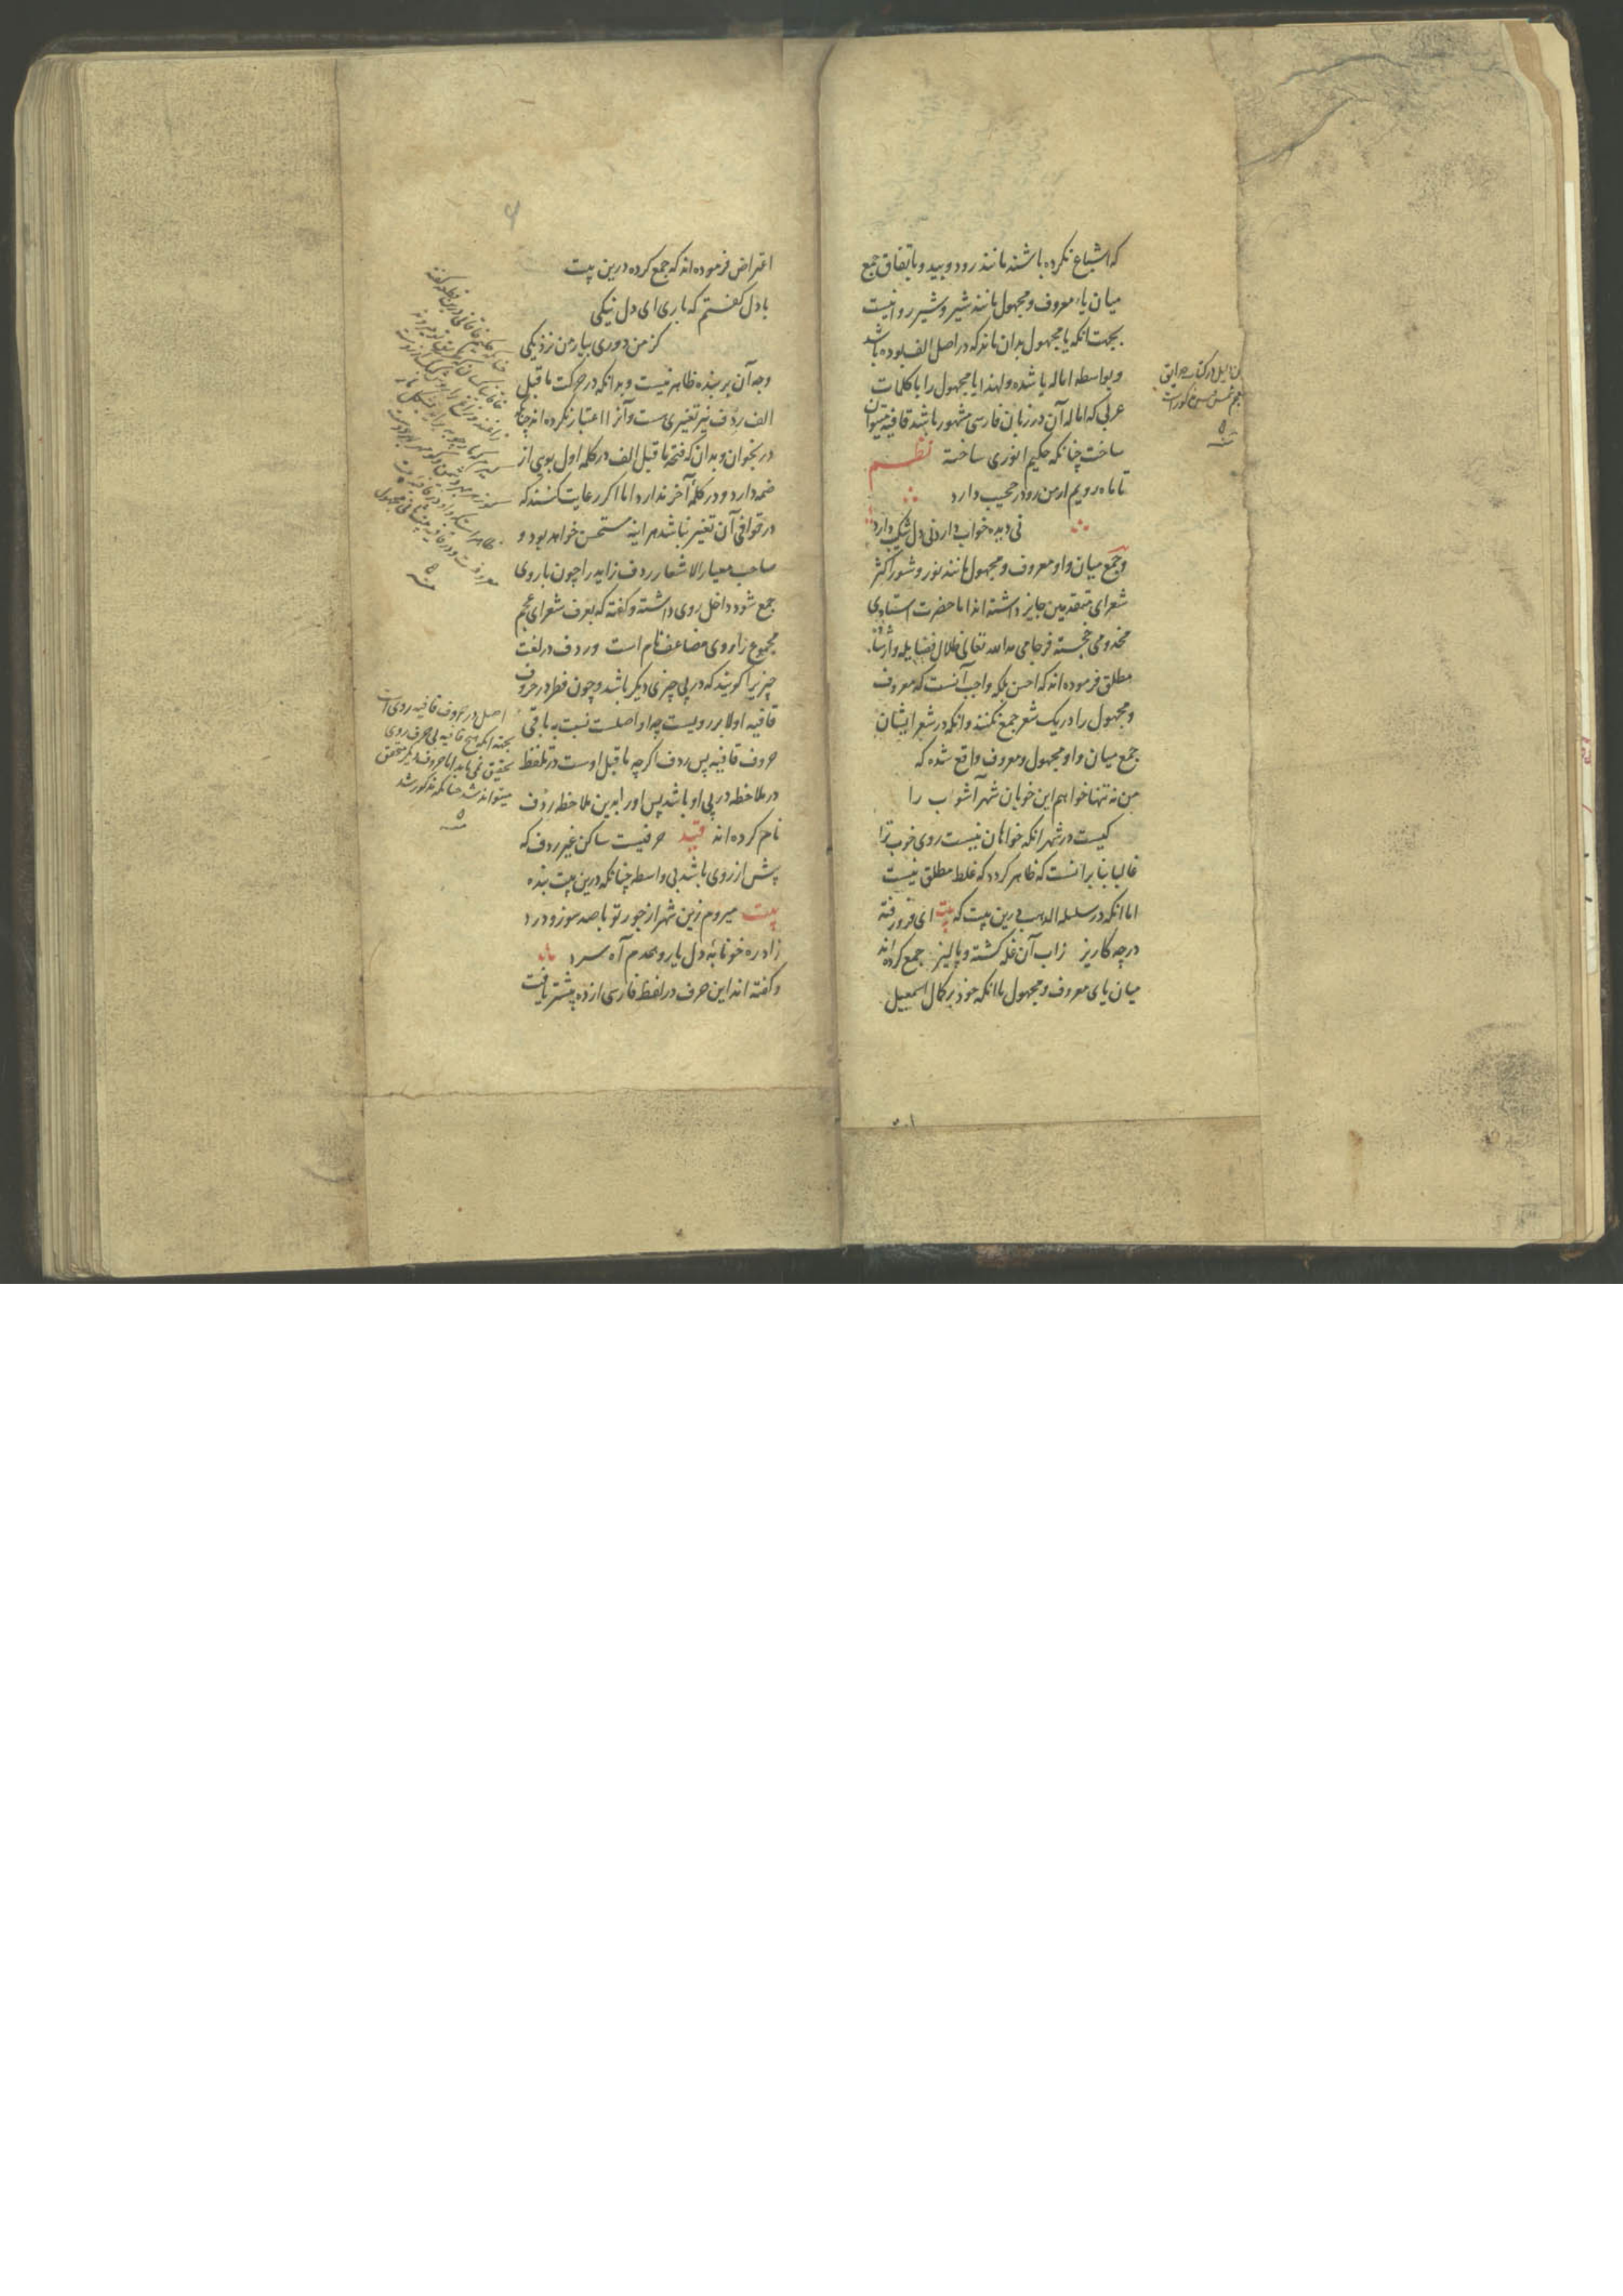 که اشباع نکرده باشند مانند رود و بید و باتفاق جمع
میان یاء معروف و مجهول مانند شیر و شیر روا نیست
بجهت انکه یا مجهول بدان ماند که در اصل الف بوده باشد
و بواسطه اماله یا شده و لهذا یا مجهول را با کلمات
عربی که اماله آن در زبان فارسی مشهور باشد قافیه میتوان
ساخت چنانکه حکیم انوری ساخته نظم
تا ماه رویم از من رو در حجیب دارد
نی دیده خواب دارد نی دل شکیب دارد
و جمع میان واو معروف و مجهول مانند نور و شور اکثر
شعرای متقدمین جایز داشته اند اما حضرت استادی
مخدومی خجسته فرجامی مد الله تعالی ظلال فضایله و ارشاده
مطلق فرموده اند که احسن بلکه واجب آنست که معروف
و مجهول را در یک شعر جمع نکنند و انکه در شعر ایشان
جمع میان واو مجهول و معروف واقع شده که
من نه تنها خواهم این خوبان شهر آشوب را
کیست در شهر انکه خواهان نیست روی خوب ترا
غالبا بنا بر انست که ظاهر کردد که غلط مطلق نیست
اما انکه در سلسله الذهب درین بیت که بیت ای فرو رفته
در چه کاریز زاب آن غله کشته و پالیز جمع کرده اند
میان یای معروف و مجهول با انکه خود بر کمال اسمعیل
در کتاب حدایق
اعتراض فرموده اند که جمع کرده درین بیت
با دل کفتم که باری ای دل نیکی
کز من دوری بیار من نزدیکی
وجه آن بر بنده ظاهر نیست و بدانکه در حرکت ماقبل
الف ردف نیز تغییری هست و آنرا اعتبار نکرده اند چنانکه
در بخوان و بدان که فتحه ماقبل الف در کلمه اول بویی از
ضمه دارد و در کلمه آخر ندارد اما اکر رعایت کنند که
در قوافی آن تغییر نباشد هر اینه مستحسن خواهد بود و
صاحب معیار الاشعار ردف زاید را چون با روی
جمع شود داخل روی داشته و کفته که بعرف شعرای عجم
مجموع را روی مضاعف نام است و ردف در لغت
چیزیرا کویند که در پی چیزی دیکر باشد و چون نظر در حروف
قافیه اولا بر رویست چه او اصلست نسبت به باقی
حروف قافیه پس ردف اکرچه ماقبل اوست در تلفظ
در ملاحظه در پی او باشد پس او را بدین ملاحظه ردف
نام کرده اند قید حرفیست ساکن غیر ردف که
پیش از روی باشد بی واسطه چنانکه درین بیت بنده
بیت میروم زین شهر از جور تو با صد سوز و درد
زاد ره خونابه دل یار و همدم آه سرد
و کفته اند این حرف در لفظ فارسی از ده بیشتر یافت
اصل در حروف قافیه روی است
بجهة انکه هیچ قافیه بی حرف روی
تحقیق نمی یابد اما حروف دیکر متحقق
میتواند شد چنانکه مذکور شد